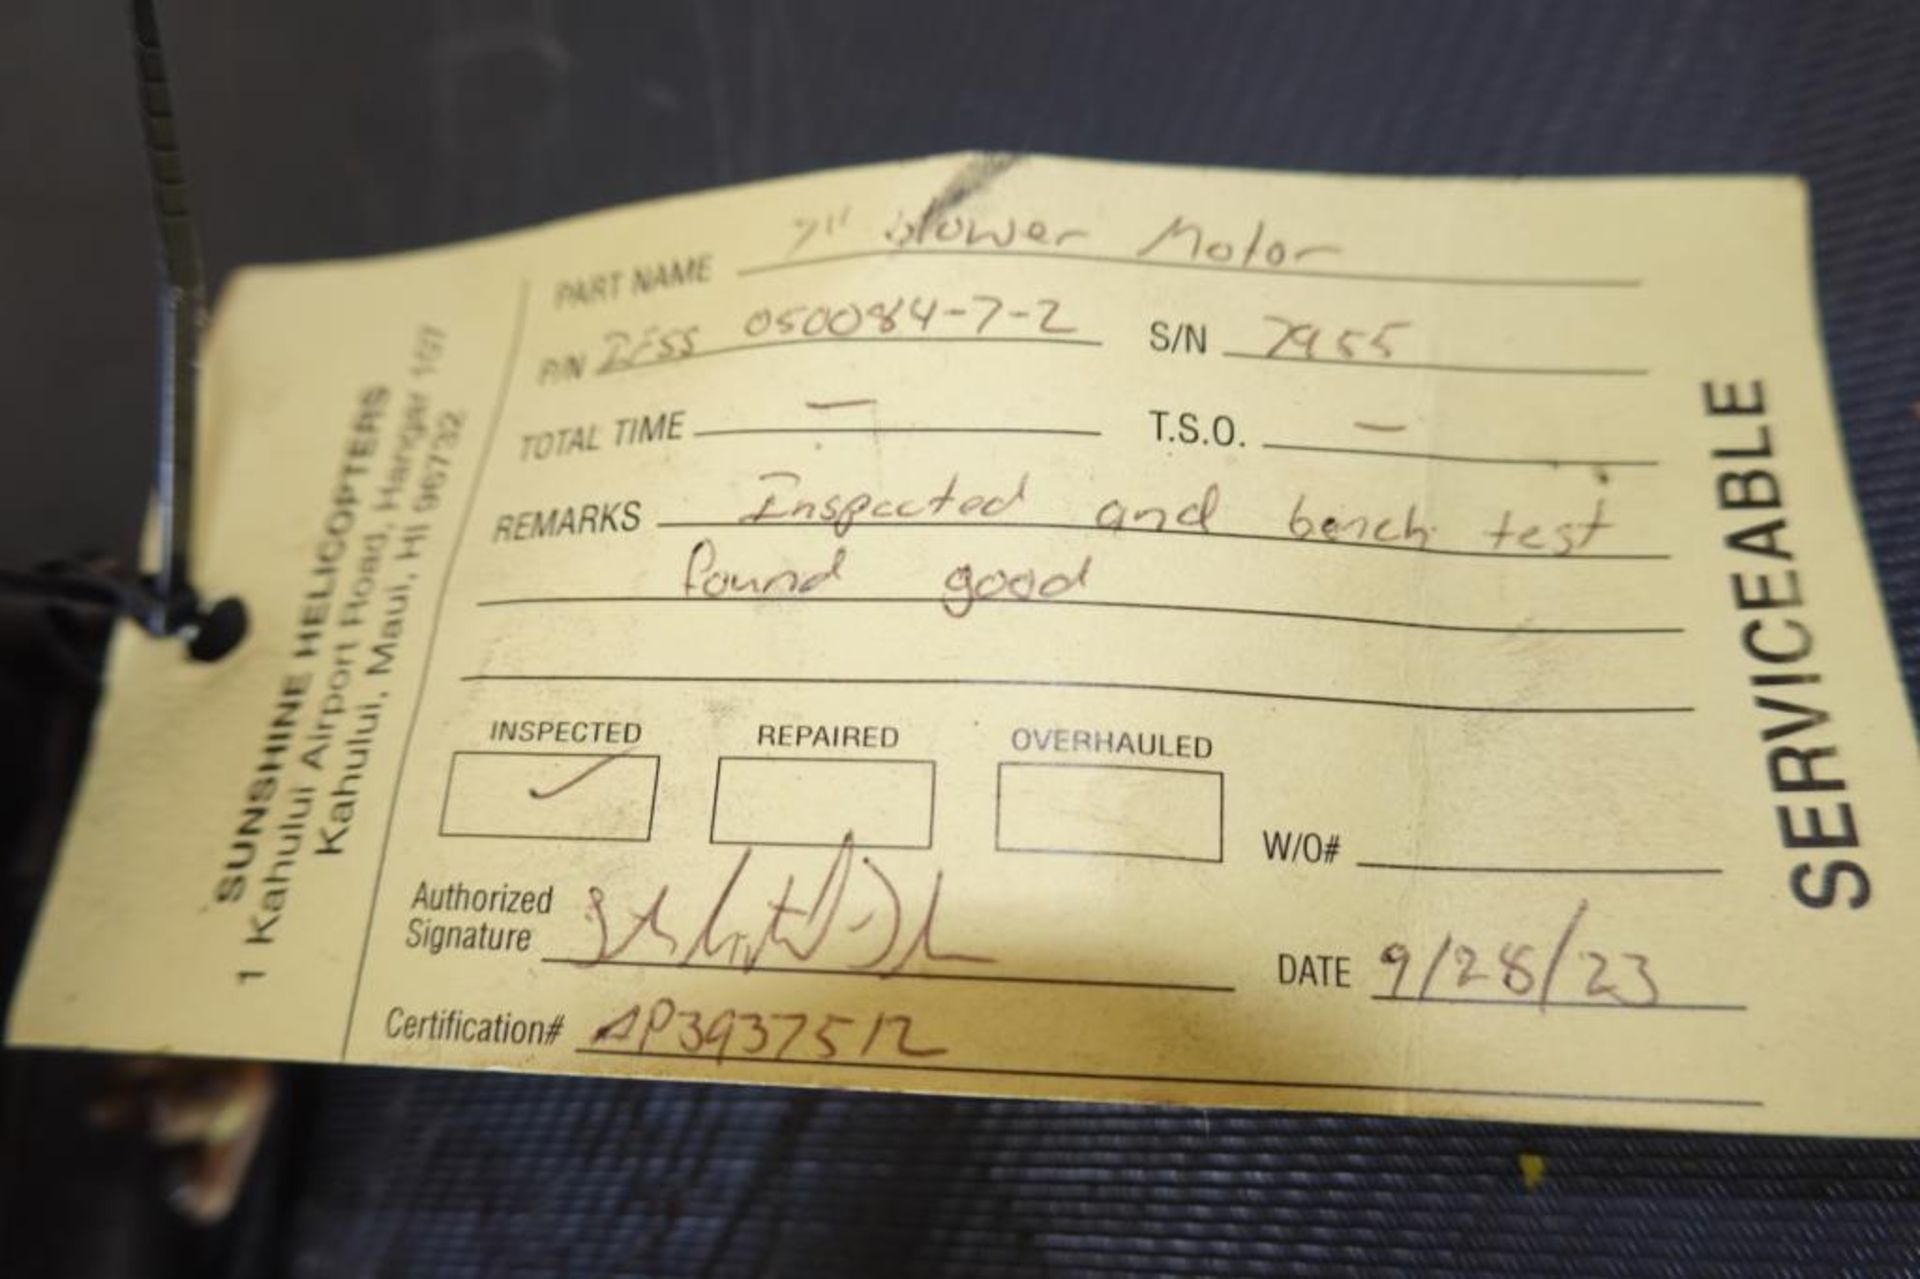 SUNSHINE HELICOPTERS
1 Kahului Airport Road, Hangar 107
Kahului, Maui, HI 96732
PART NAME 7" blower Motor
P/N 050084-7-2 S/N 7955
TOTAL TIME — T.S.O. —
REMARKS Inspected and bench test
found good
INSPECTED REPAIRED OVERHAULED
✓
W/O#
Authorized
Signature
DATE 9/28/23
Certification# AP3937512
SERVICEABLE